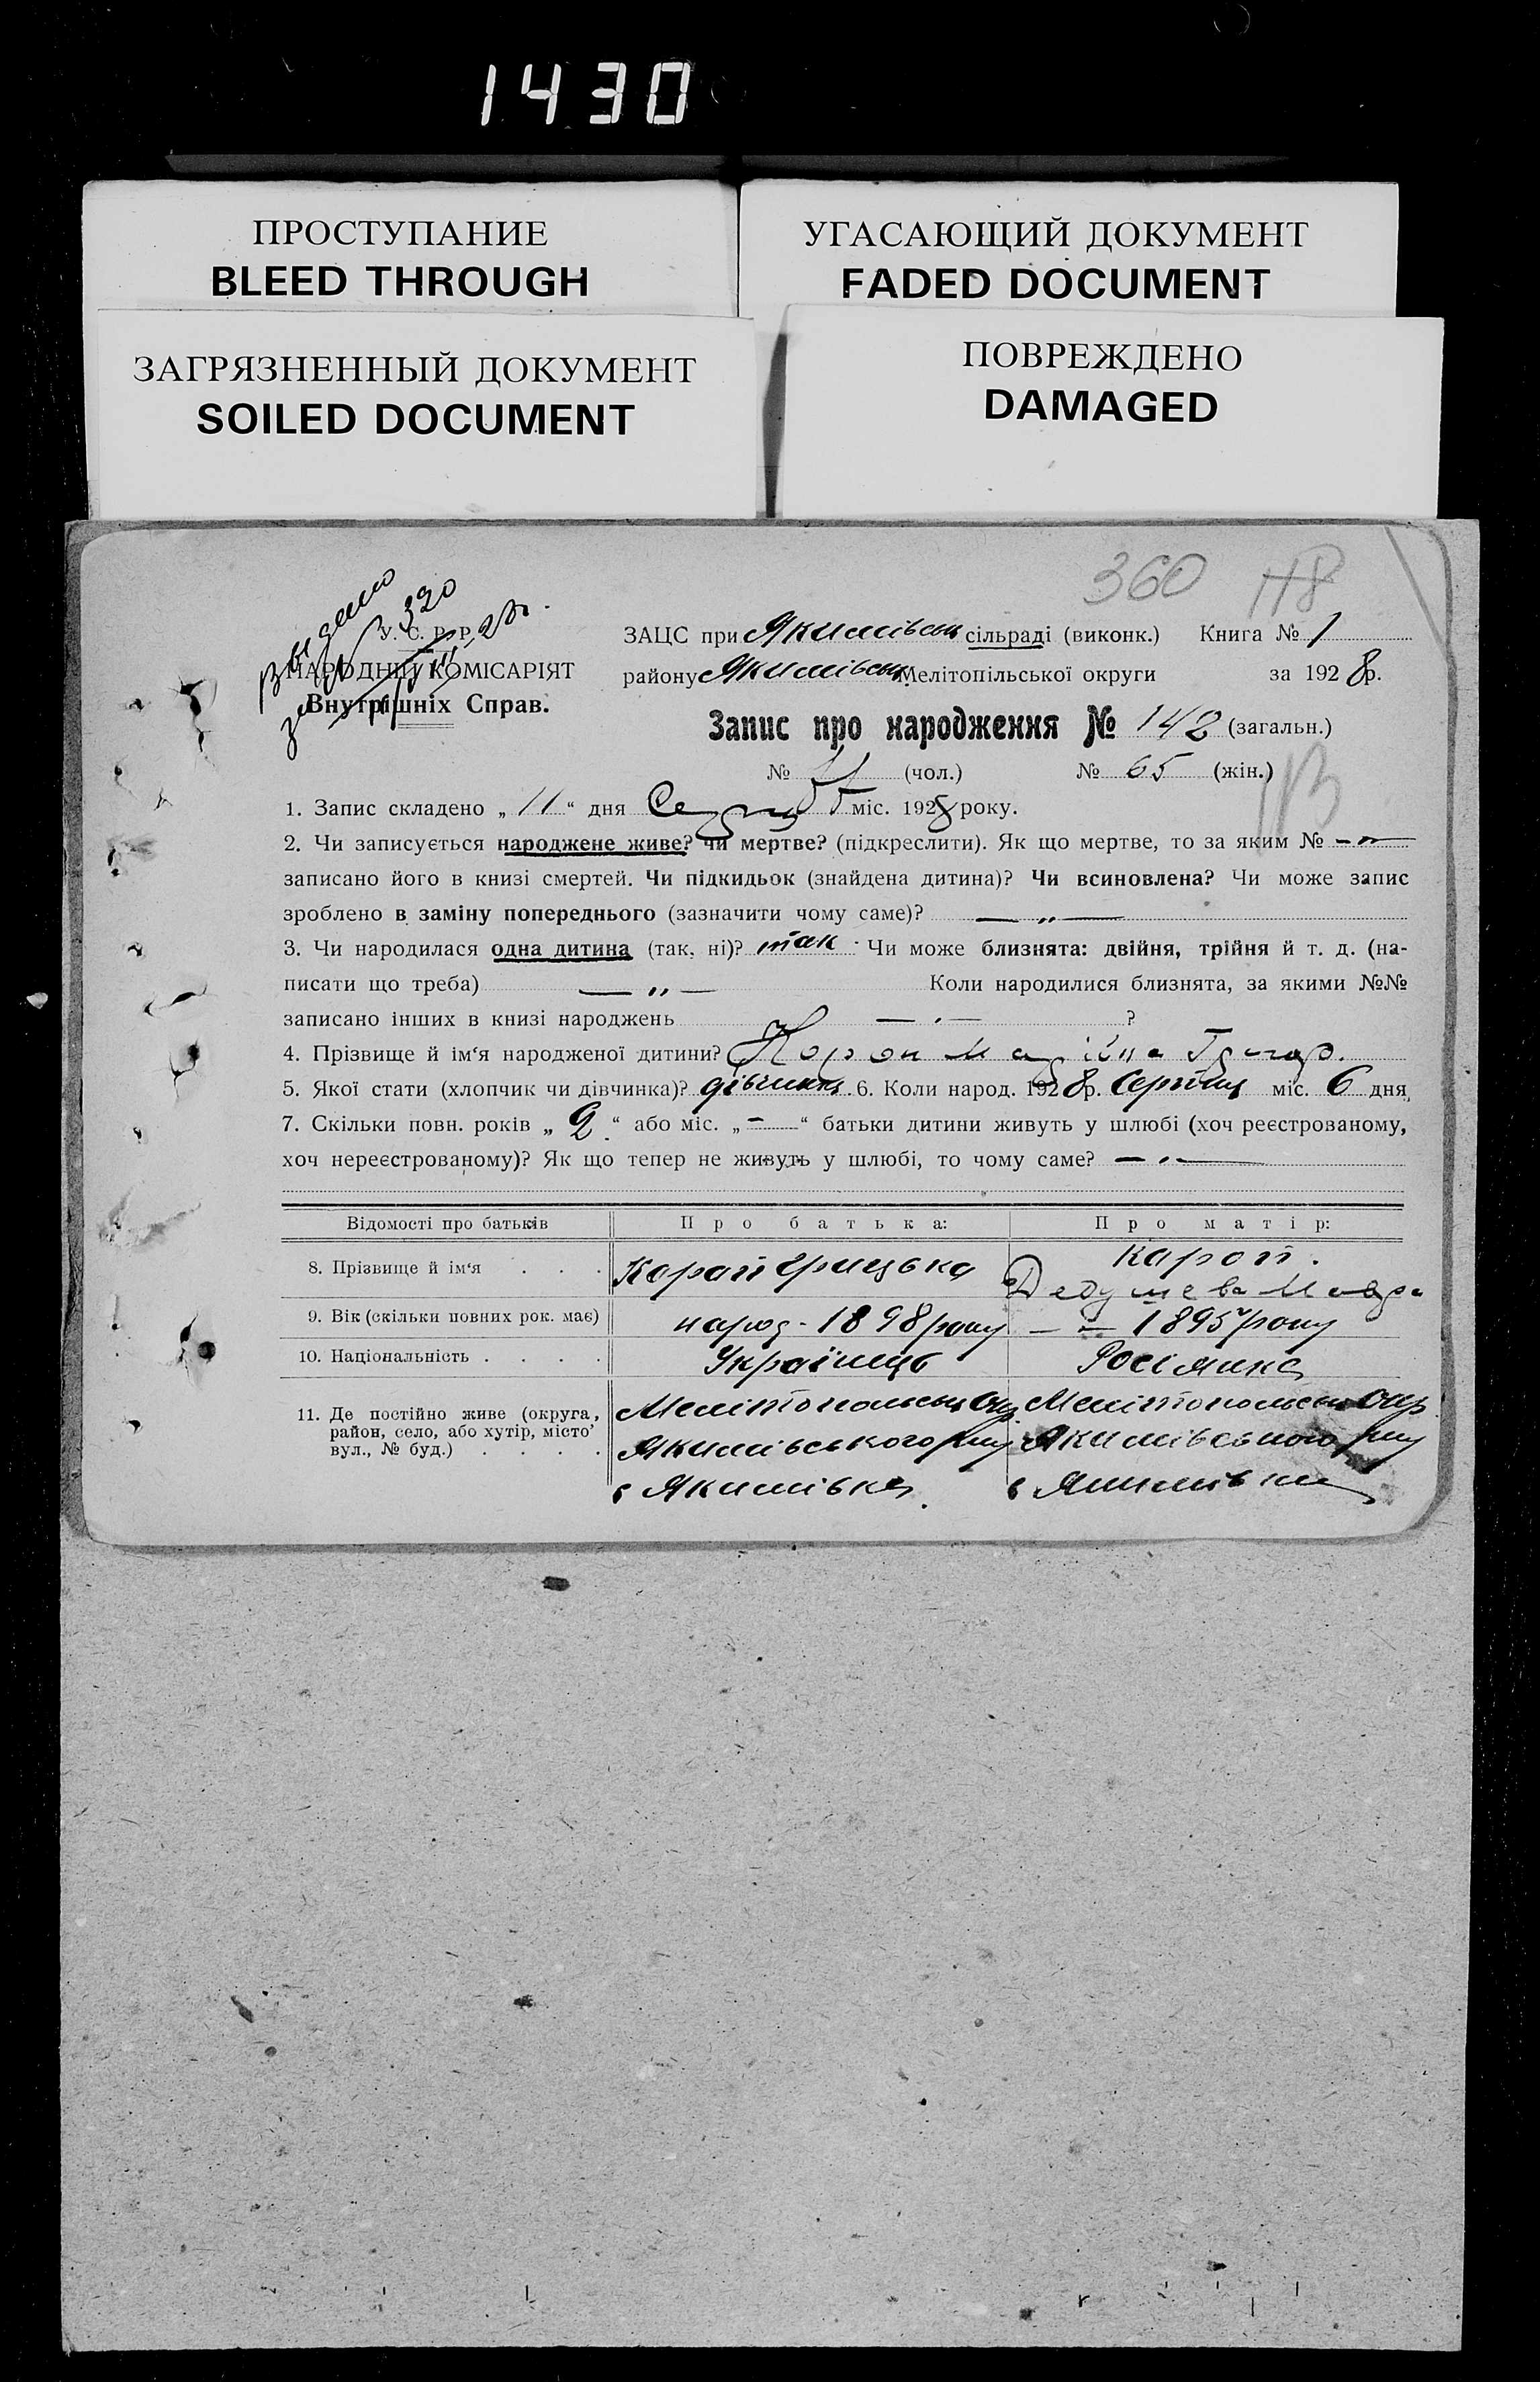 1430
ПРОСТУПАНИЕ
BLEED THROUGH
УГАСАЮЩИЙ ДОКУМЕНТ
FADED DOCUMENT
ЗАГРЯЗНЕННЫЙ ДОКУМЕНТ
SOILED DOCUMENT
ПОВРЕЖДЕНО
DAMAGED
360 118
Видано
за № 320
У. С. Р. Р.
НАРОДНІЙ КОМІСАРІЯТ
Внутрішніх Справ.
ЗАЦС при Якимівськ сільраді (виконк.) Книга № 1
району Якимівськ Мелітопільської округи за 1928р.
Запис про народження № 142 (загальн.)
№ (чол.) № 65 (жін.)
1. Запис складено „ 11 “ дня Серпня міс. 1928 року.
2. Чи записується народжене живе? чи мертве? (підкреслити). Як що мертве, то за яким № — „ —
записано його в книзі смертей. Чи підкидьок (знайдена дитина)? Чи всиновлена? Чи може запис
зроблено в заміну попереднього (зазначити чому саме)? — „ —
3. Чи народилася одна дитина (так, ні)? так Чи може близнята: двійня, трійня й т. д. (на-
писати що треба) — „ — Коли народилися близнята, за якими №№
записано інших в книзі народжень — „ — ?
4. Прізвище й ім‘я народженої дитини?
5. Якої стати (хлопчик чи дівчинка)? дівчинка. 6. Коли народ. 1928р. Серпня міс. 6 дня,
7. Скільки повн. років „ 2 “ або міс. „ — “ батьки дитини живуть у шлюбі (хоч реєстрованому,
хоч нереєстрованому)? Як що тепер не живуть у шлюбі, то чому саме? — „ —
Відомості про батьків Про батька: Про матір:
8. Прізвище й ім‘я . . . Корой Грицько Карой.
Дедушева
9. Вік (скільки повних рок. має) народ - 1898 року — „ — 1895 року
10. Національність . . . . Українець Росіянка
11. Де постійно живе (округа, район, село, або хутір, місто’ вул., № буд.) . . . .
Мелітопольськ Окр Мелітопольськ Окр
Якимівського р-ну Якимівського р-ну
с Якимівка с Якимівка